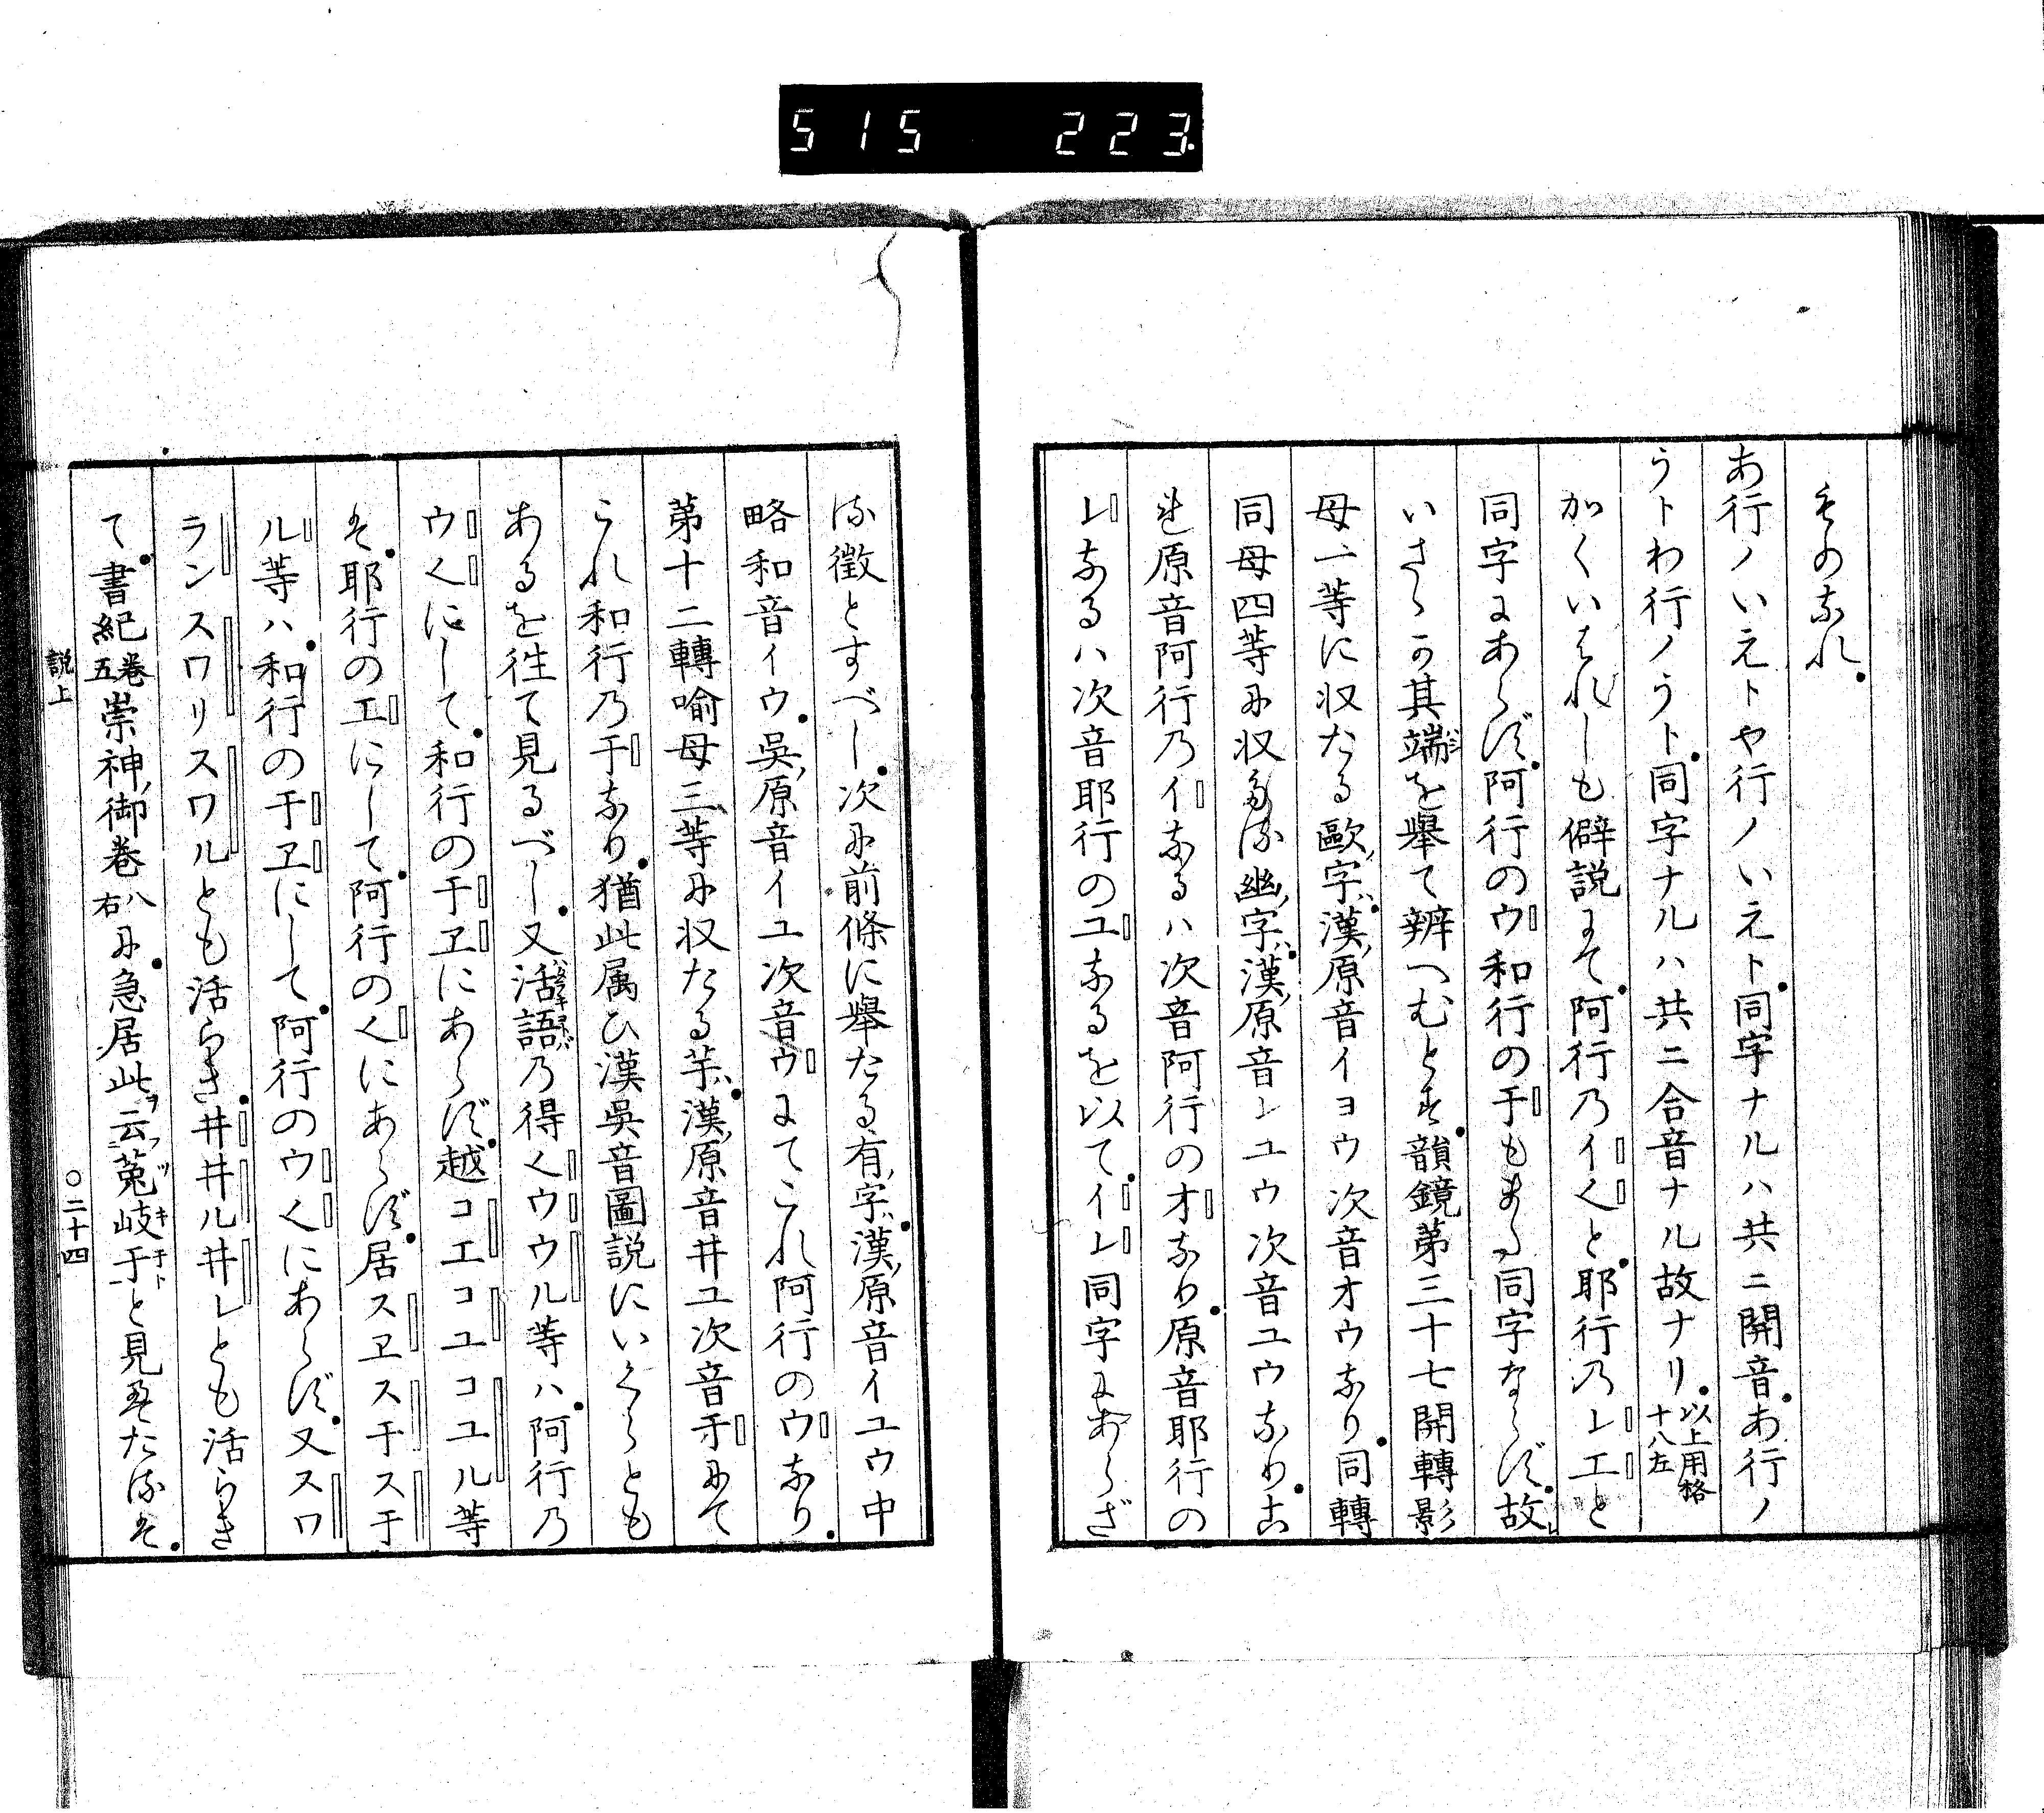 515 223.
ものなれ。
あ行ノいえトや行ノいえト同字ナルハ共ニ開音。あ行ノ
うトわ行ノうト。同字ナルハ共ニ合音ナル故ナリ。以上用格十八左
かくいはれしも僻説にて。阿行乃イ𛀀と。耶行乃𛄠エと
同字にあらず。阿行のウ和行の于もまた同字ならず。故
いさゝか其端を舉て辨へむとす。韻鏡第三十七開轉影
母一等に収たる歐字ハ。漢原音イヨウ次音オウなり。同轉
同母四等に収たる幽字ハ。漢原音𛄠ユウ次音ユウなり。こ
れ原音阿行乃イなるハ次音阿行のオなり。原音耶行の
𛄠なるハ次音耶行のユなるを以て。イ𛄠同字にあらざ
る徴とすべし。次に前條に舉たる有字ハ。漢原音イユウ中
略和音イウ。呉原音イユ次音ウにてこれ阿行のウなり。
第十二轉喻母三等に収たる芋ハ。漢原音井ユ次音于にて
これ和行乃于なり。猶此属ひ漢呉音圖説にいくらとも
あるを徃て見るべし。又活語乃得𛀀ウウル等ハ。阿行乃
ウ𛀀にして。和行の于ヱにあらず。越コエコユコユル等
も。耶行のエにして。阿行の𛀀にあらず。居スヱス于ス于
ル等ハ。和行の于ヱにして。阿行のウ𛀀にあらず。又スワ
ランスワリスワルとも活らき。井井ル井レとも活らき
て。書紀巻五崇神御巻八右に。急居此云菟岐于と見えたるも。
説上
○二十四